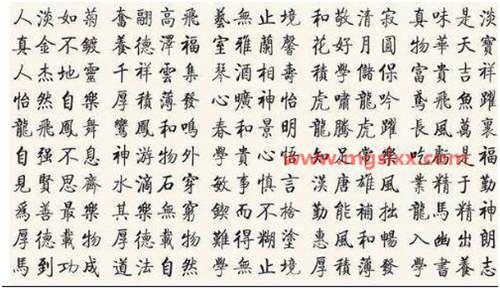 人淡如菊 奮翮高飛 藝無止境 和敬清寂 真味是淡
真金不鍍 養德澤福 室雅蘭馨 花好月圓 物華天寶
人杰地靈 千祥雲集 琴酒相壽 積學儲保 富貴吉祥
怡然自樂 厚積薄發 心曠神怡 虎嘯龍吟 鳶飛魚躍
龍飛鳳舞 鸞鳳和鳴 春和景明 龍騰虎躍 長風萬裏
自强不息 神游物外 學貴心悟 知足常樂 吃虧是福
見賢思齊 水滴石穿 敏事慎言 漢唐雄風 業精於勤
爲善最樂 其樂無窮 鍥而不捨 勤能補拙 龍馬精神
厚德載物 厚德載物 難得糊塗 惠風和暢 入幽出朗
馬到功成 道法自然 學無止境 厚積薄發 學書養志